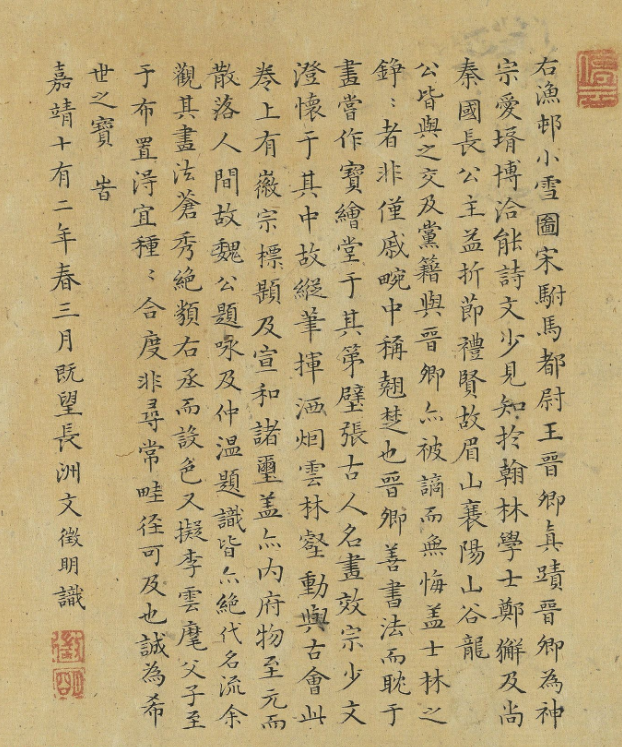 右漁邨小雪圖宋駙馬都尉王晉卿真蹟晉卿為神
宗愛壻博洽能詩文少見知於翰林學士鄭獬及尚
秦國長公主益折節禮賢故眉山襄陽山谷龍
公皆與之交及黨籍與晉卿亦被謫而無悔盖士林之
錚〻者非僅戚畹中稱翹楚也晉卿善書法而耽于
畫嘗作寶繪堂于其第壁張古人名畫效宗少文
澄懷于其中故縱筆揮洒烟雲林壑動與古會此
卷上有徽宗標題及宣和諸璽盖亦内府物至元而
散落人間故魏公題咏及仲温題識皆亦絶代名流余
觀其畫法蒼秀絶類右丞而設色又擬李雲麾父子至
于布置淂宜種〻合度非尋常畦徑可及也誠為希
世之寶 旹
嘉靖十有二年春三月既望長洲文徵明識
徵明